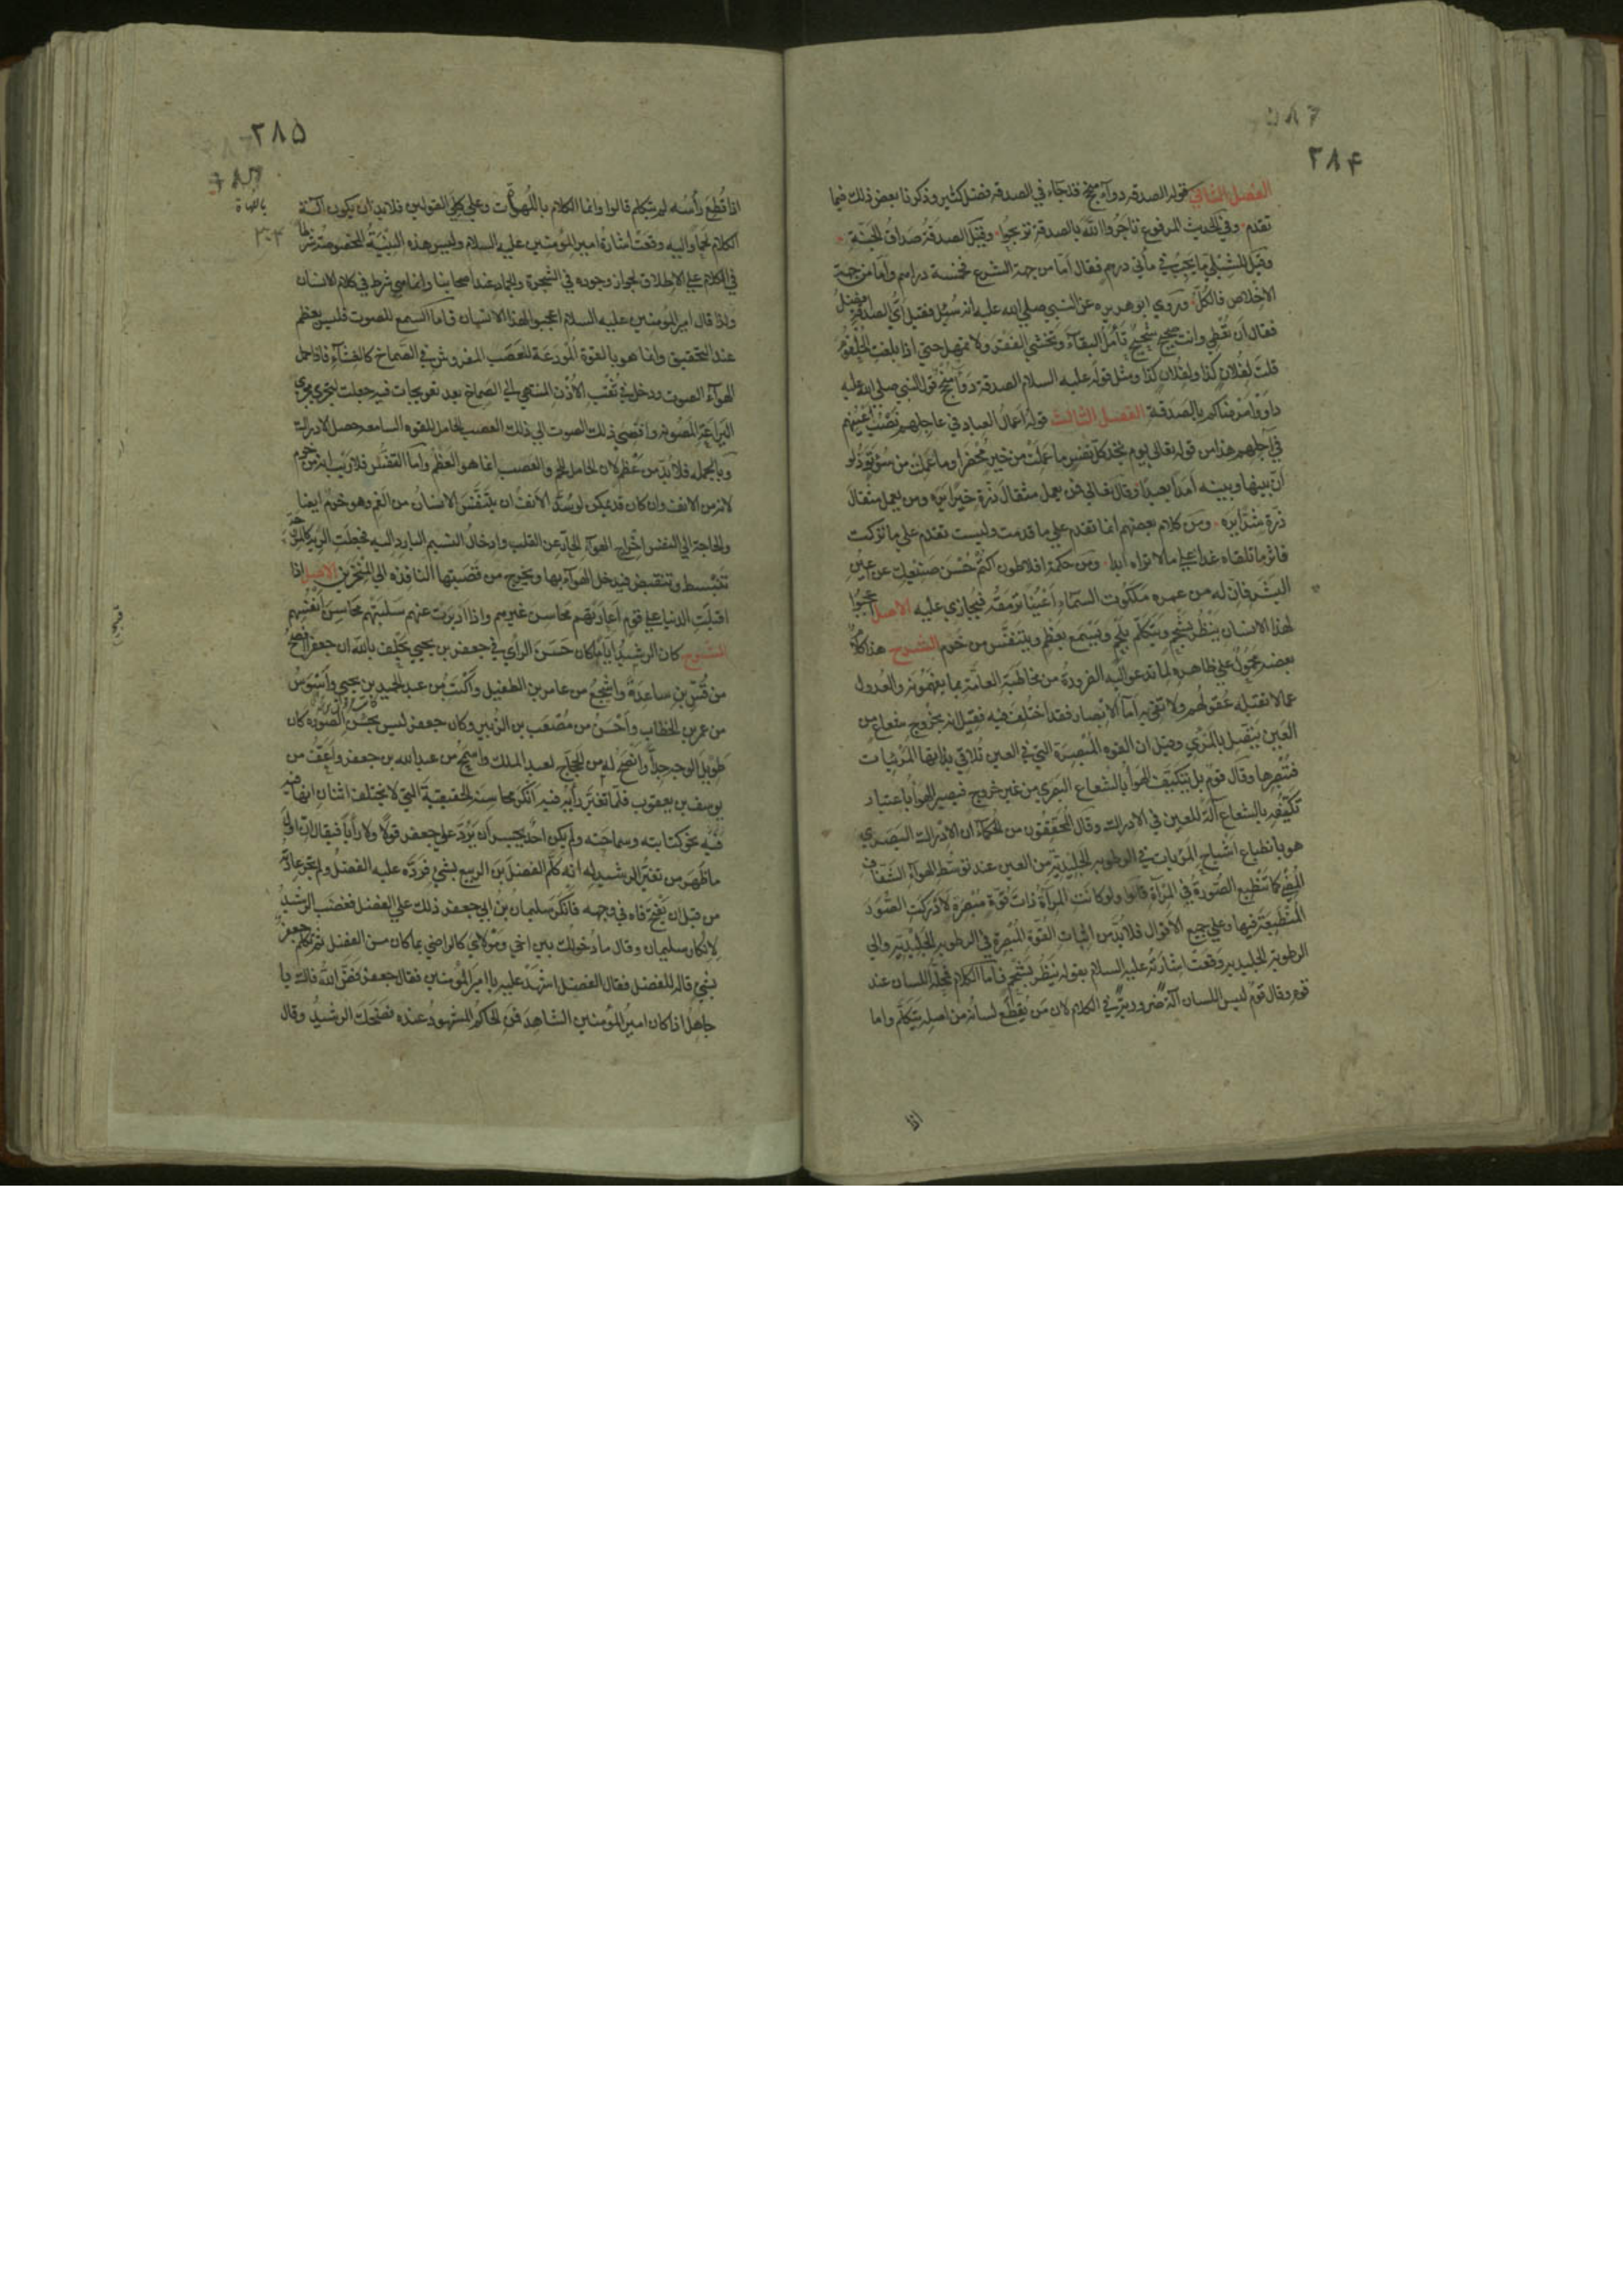 ۲۸۴
الفصل الثاني قوله الصدقه دواء منجح قد جاء في الصدقه فضل كثير وذكرنا بعض ذلك فيما
تقدم وفي الحديث المرفوع تاجروا الله بالصدقة تربحوا وقيل الصدقة صداق الجنة
وقيل للشبلي ما يجب في مأتي درهم فقال اما من جهة الشرع فخمسة دراهم واما من جهة
الاخلاص فالكل وروي ابو هريره عن النبي صلي الله عليه انه سئل فقيل أي الصدقة افضل
فقال أن تعطي وانت صحيح شحيح تأمل البقاء وتخشي الفقر ولا تمهل حتي اذا بلغت الحلقوم
قلت لفلان كذا ولفلان كذا ومثل قوله عليه السلام الصدقة دواء منجح قول النبي صلي الله عليه
داووا مرضاكم بالصدقة الفصل الثالث قوله أعمال العباد في عاجلهم نصب اعينهم
في آجلهم هذا من قوله تعالي يوم تجد كل نفس ما عملت من خير محضرا وما عملت من سوء تود لو
أن بينها وبينه أمدا بعيدا وقال تعالي فمن يعمل مثقال ذرة خيرا يره ومن يعمل مثقال
ذرة شرا يره ومن كلام بعضهم انما تقدم علي ما قدمت وليست تقدم علي ما تركت
فاثر ما تلقاه غدا علي ما لا تراه ابدا ومن حكمة افلاطون اكتم حسن صنيعك عن اعين
البشر فان له من عمره ملكوت السماء أعينا ترمقه فيجازي عليه الاصل اعجبوا
لهذا الانسان ينظر بشحم ويتكلم بلحم ويسمع بعظم ويتنفس من خرم الشرح هذا كلام
بعضه محمول علي ظاهره لما تدعو اليه الضرورة من مخاطبة العامة بما يفهمونه والعدول
عما لا تقبله عقولهم ولا تفي به اما الابصار فقد اختلف فيه فقيل انه بخروج شعاع من
العين يتصل بالمرئي وقيل ان القوه المبصرة التي في العين تلاقي بذاتها المرئيات
فتبصرها وقال قوم بل يتكيف الهواء بالشعاع البصري من غير خروج فيصير الهوا باعتبار
تكيفه بالشعاع آلة للعين في الادراك وقال المحققون من الحكماء ان الادراك البصري
هو بانطباع اشباح المرئيات في الرطوبه الجليدية من العين عند توسط الهواء الشفاف
المضيء كما تنطبع الصورة في المرآة قالوا ولو كانت المرآة ذات قوة مبصرة لادركت الصور
المنطبعة فيها وعلي جميع الاقوال فلا بد من اثبات القوة المبصرة في الرطوبه الجليديه والي
الرطوبة الجليديه وقعت اشارته عليه السلام بقوله ينظر بشحم فاما الكلام فمحله اللسان عند
قوم وقال قوم ليس اللسان آلة ضرورية في الكلام لان من يقطع لسانه من اصله يتكلم واما
اذا
۲۸۵
اذا قطع رأسه لم يتكلم قالوا وانما الكلام باللهوات وعلي كلي القولين فلا بد ان يكون آلة
الكلام لحما واليه وقعت اشارة امير المؤمنين عليه السلام وليس هذه البنية المخصوصة شرطا
في الكلام علي الاطلاق لجواز وجوده في الشجرة والجماد عند اصحابنا وانما هي شرط في كلام الانسان
ولذا قال امير المؤمنين عليه السلام اعجبوا لهذا الانسان فاما السمع للصوت فليس بعظم
عند التحقيق وانما هو بالقوة المودعة للعصب المفروش في الصماخ كالغشاء فاذا حمل
الهواء الصوت ودخل في ثقب الاذن المنتهي الي الصماخ بعد تعويجات فيه جعلت لتجري مجري
اليراعة المصوته وافضي ذلك الصوت الي ذلك العصب الحامل للقوه السامعه حصل الادراك
وبالجمله فلا بد من عظم لان الحامل للحم والعصب انما هو العظم واما التنفس فلا ريب انه من خرم
لانه من الانف وان كان قد يمكن لو سد الانف ان يتنفس الانسان من الفم وهو خرم ايضا
والحاجة الي النفس اخراج الهواء الحار عن القلب وادخال النسيم البارد اليه فجعلت الريه كالمروحة
تنبسط وتنقبض فيدخل الهواء بها ويخرج من قصبتها النافذه الي المنخرين الاصل اذا
اقبلت الدنيا علي قوم اعارتهم محاسن غيرهم واذا ادبرت عنهم سلبتهم محاسن أنفسهم
الشرح كان الرشيد أيام كان حسن الرأي في جعفر بن يحيي يحلف بالله ان جعفرا افصح
من قس بن ساعدة واشجع من عامر بن الطفيل واكتب من عبد الحميد بن يحيي واسوس
من عمر بن الخطاب وأحسن من مصعب بن الزبير وكان جعفر ليس بحسن الصوره كان
طويل الوجه جدا وانصح له من الحجاج لعبد الملك واسمح من عبد الله بن جعفر واعف من
يوسف بن يعقوب فلما تغير رأيه فيه انكر محاسنه الحقيقية التي لا يختلف اثنان انها فيه
نحو كتابته وسماحته ولم يكن احد يجسر أن يرد علي جعفر قولا ولا رأيا فيقال ان اول
ما ظهر من تغير الرشيد له انه كلم الفضل بن الربيع بشيء فرده عليه الفضل ولم تجر عادته
من قبل أن يفتح فاه في وجهه فانكر سليمان بن ابي جعفر ذلك علي الفضل فغضب الرشيد
لانكار سليمان وقال ما دخولك بين اخي ومولاي كالراضي بما كان من الفضل ثم تكلم جعفر
بشيء قاله للفضل فقال الفضل اشهد عليه يا امير المؤمنين فقال جعفر فض الله فاك يا
جاهل اذا كان امير المؤمنين الشاهد فمن الحاكم المشهود عنده فضحك الرشيد وقال